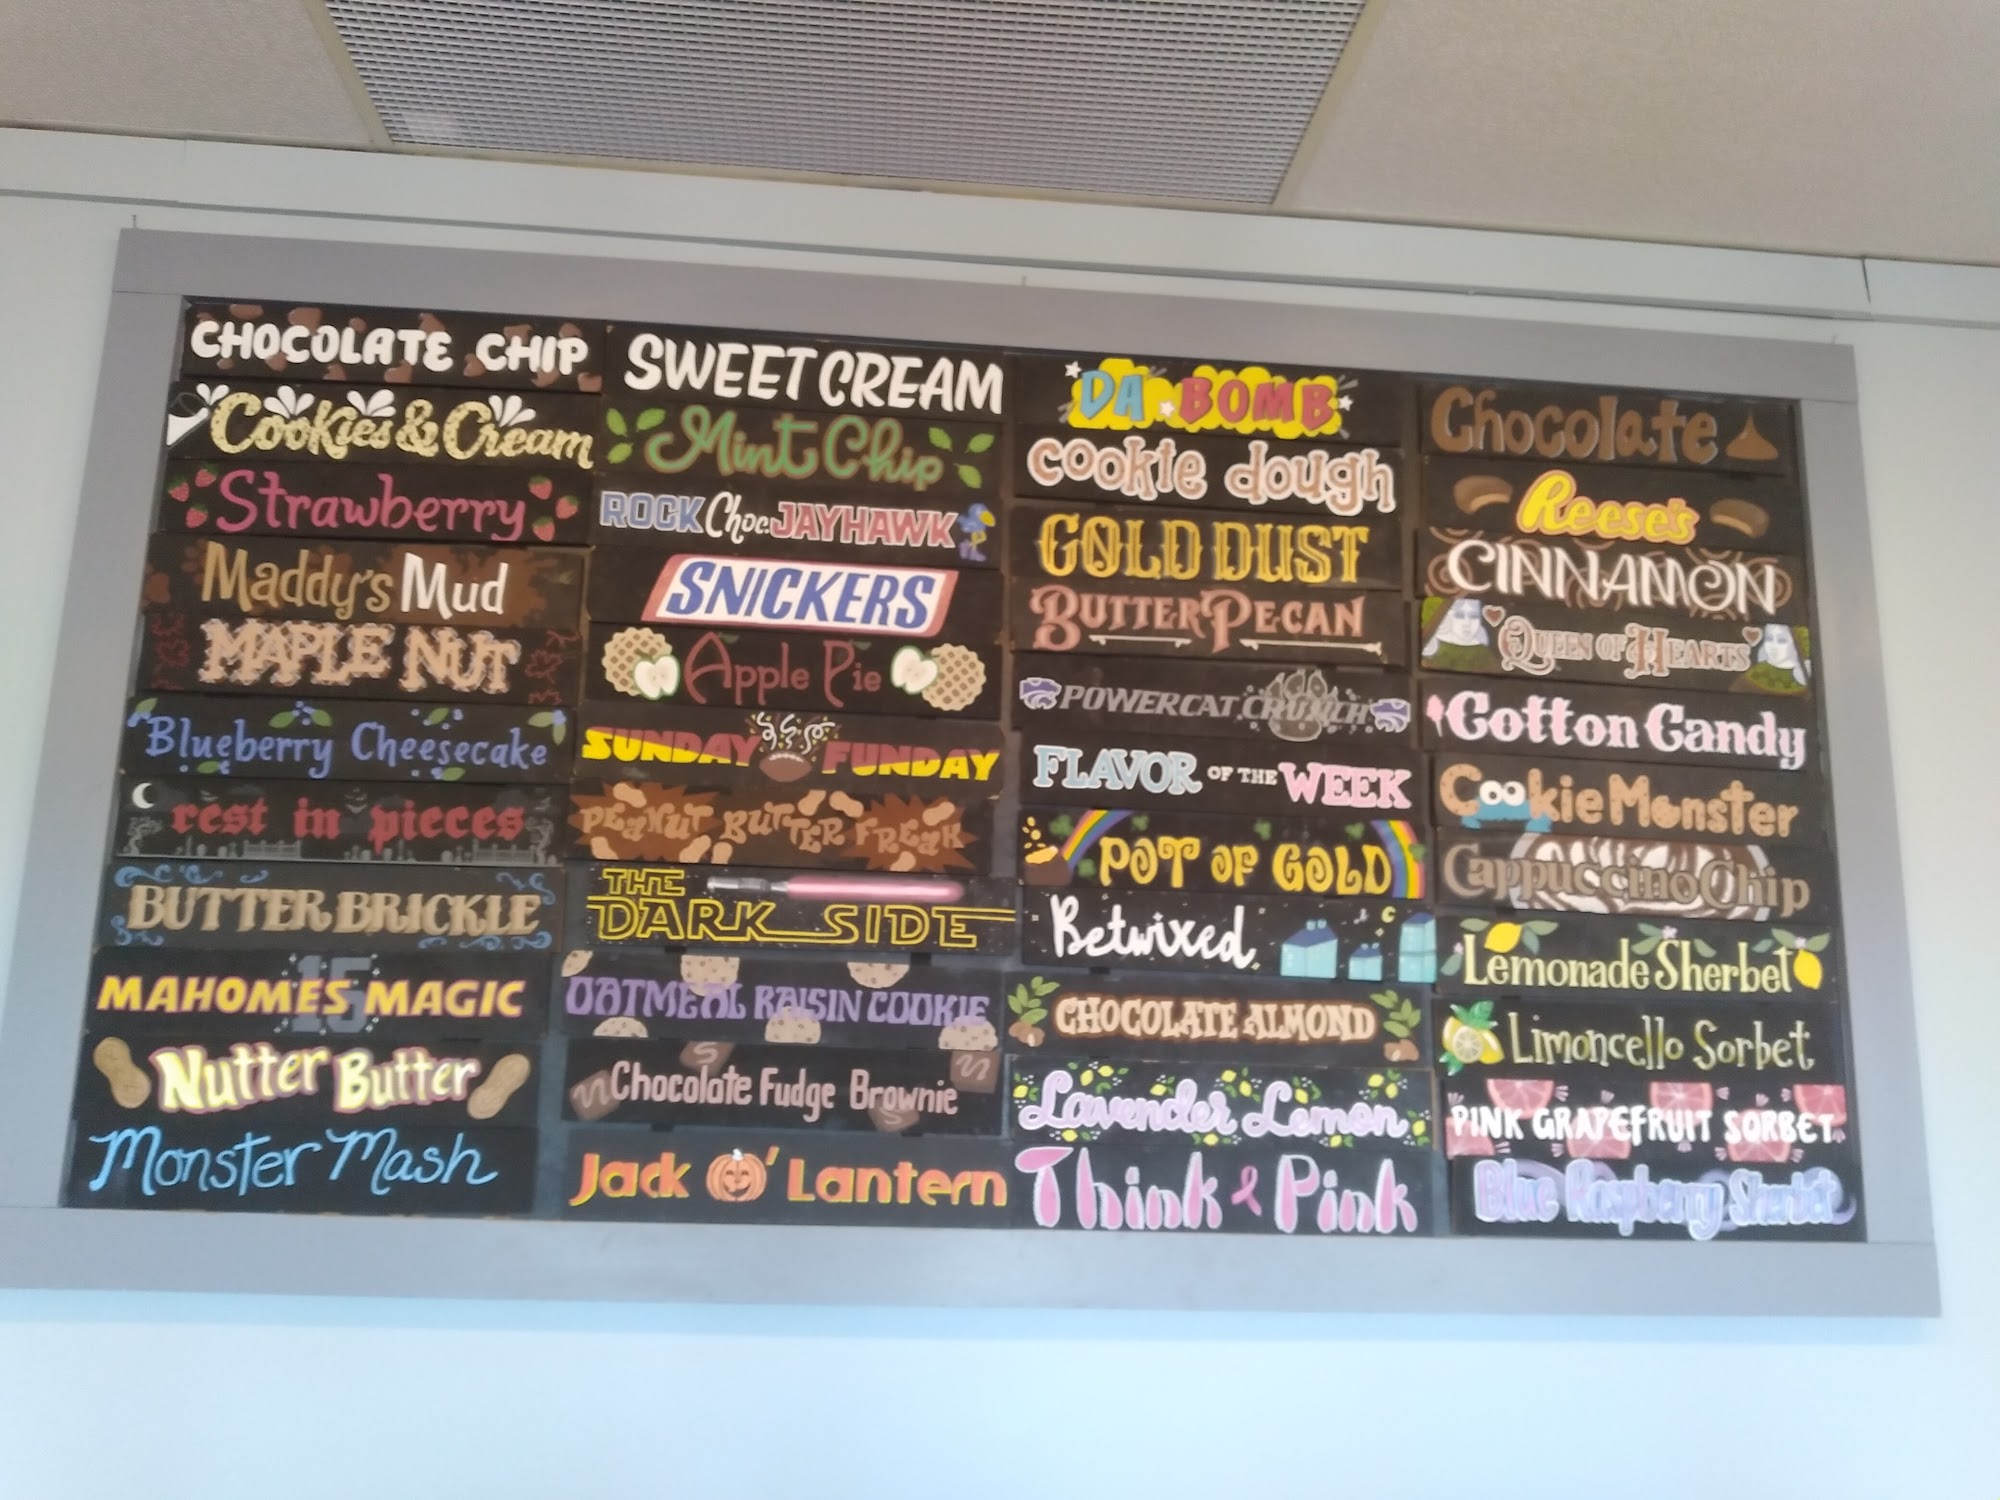 CHOCOLATE CHIP
Cookies & Cream
Strawberry
Maddy's Mud
MAPLE NUT
Blueberry Cheesecake
rest in pieces
BUTTER BRICKLE
15
MAHOMES MAGIC
Nutter Butter
Monster Mash
SWEET CREAM
Mint Chip
ROCK Choc. JAYHAWK
SNICKERS
Apple Pie
SUNDAY FUNDAY
PEANUT BUTTER FREAK
THE
DARK SIDE
OATMEAL RAISIN COOKIE
Chocolate Fudge Brownie
Jack O' Lantern
DA BOMB
cookie dough
GOLD DUST
BUTTER PECAN
POWERCAT CRUNCH
FLAVOR OF THE WEEK
POT OF GOLD
Betwixed
CHOCOLATE ALMOND
Lavender Lemon
Think Pink
Chocolate
Reese's
CINNAMON
QUEEN OF HEARTS
Cotton Candy
Cookie Monster
Cappuccino Chip
Lemonade Sherbet
Limoncello Sorbet
PINK GRAPEFRUIT SORBET
Blue Raspberry Sherbet